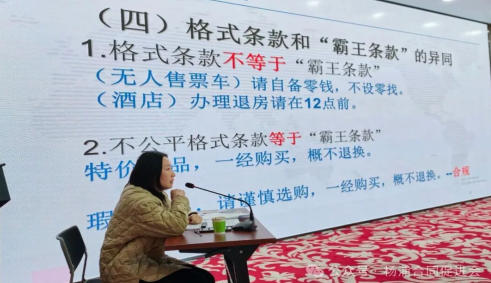 （四）格式条款和“霸王条款”的异同
1.格式条款不等于“霸王条款”
（无人售票车）请自备零钱，不设零找。
（酒店）办理退房请在12点前。
2.不公平格式条款等于“霸王条款”
特价 品，一经购买，概不退换。
瑕 ，请谨慎选购，一经购买，概不退换。--合规
公众号·杨浦合同促进会